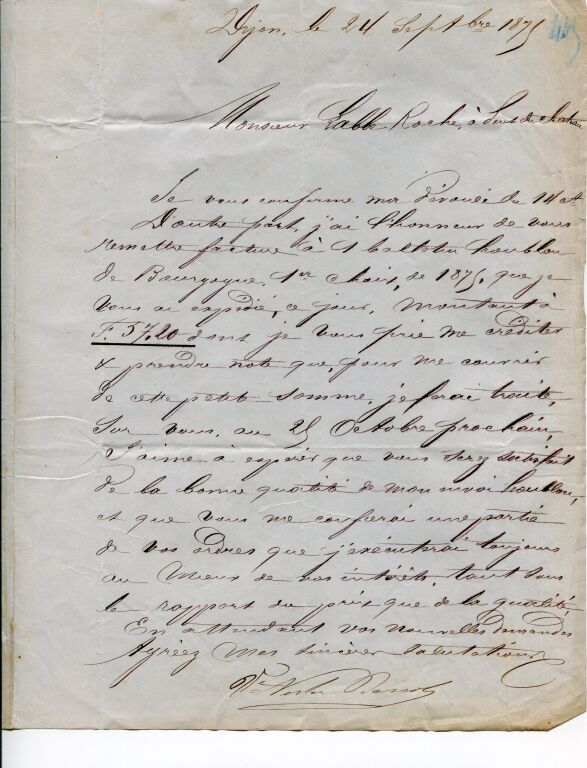 Dijon, le 24 Septbre 1875
Monsieur Labbé Roche, à Pont de
Je vous confirme ma du 14 ct
D'autre part, j'ai l'honneur de vous
remettre facture à 1 ballotin houblon
de Bourgogne, 1er choix, de 1875, que je
vous ai expédié, ce jour, montant à
F. 57,20 dont je vous prie me créditer
& prendre note que, pour me couvrir
de cette petite somme, je ferai traite,
sur vous, au 25 Octobre prochain,
J'aime à espérer que vous serez satisfait
de la bonne qualité de mon envoi houblon,
et que vous me confierai une partie
de vos ordres que j'exécuterai toujours
au mieux de vos intérêts, tant sous
le rapport du prix que de la qualité,
En attendant vos nouvelles demandes
Agréez mes sincères salutations